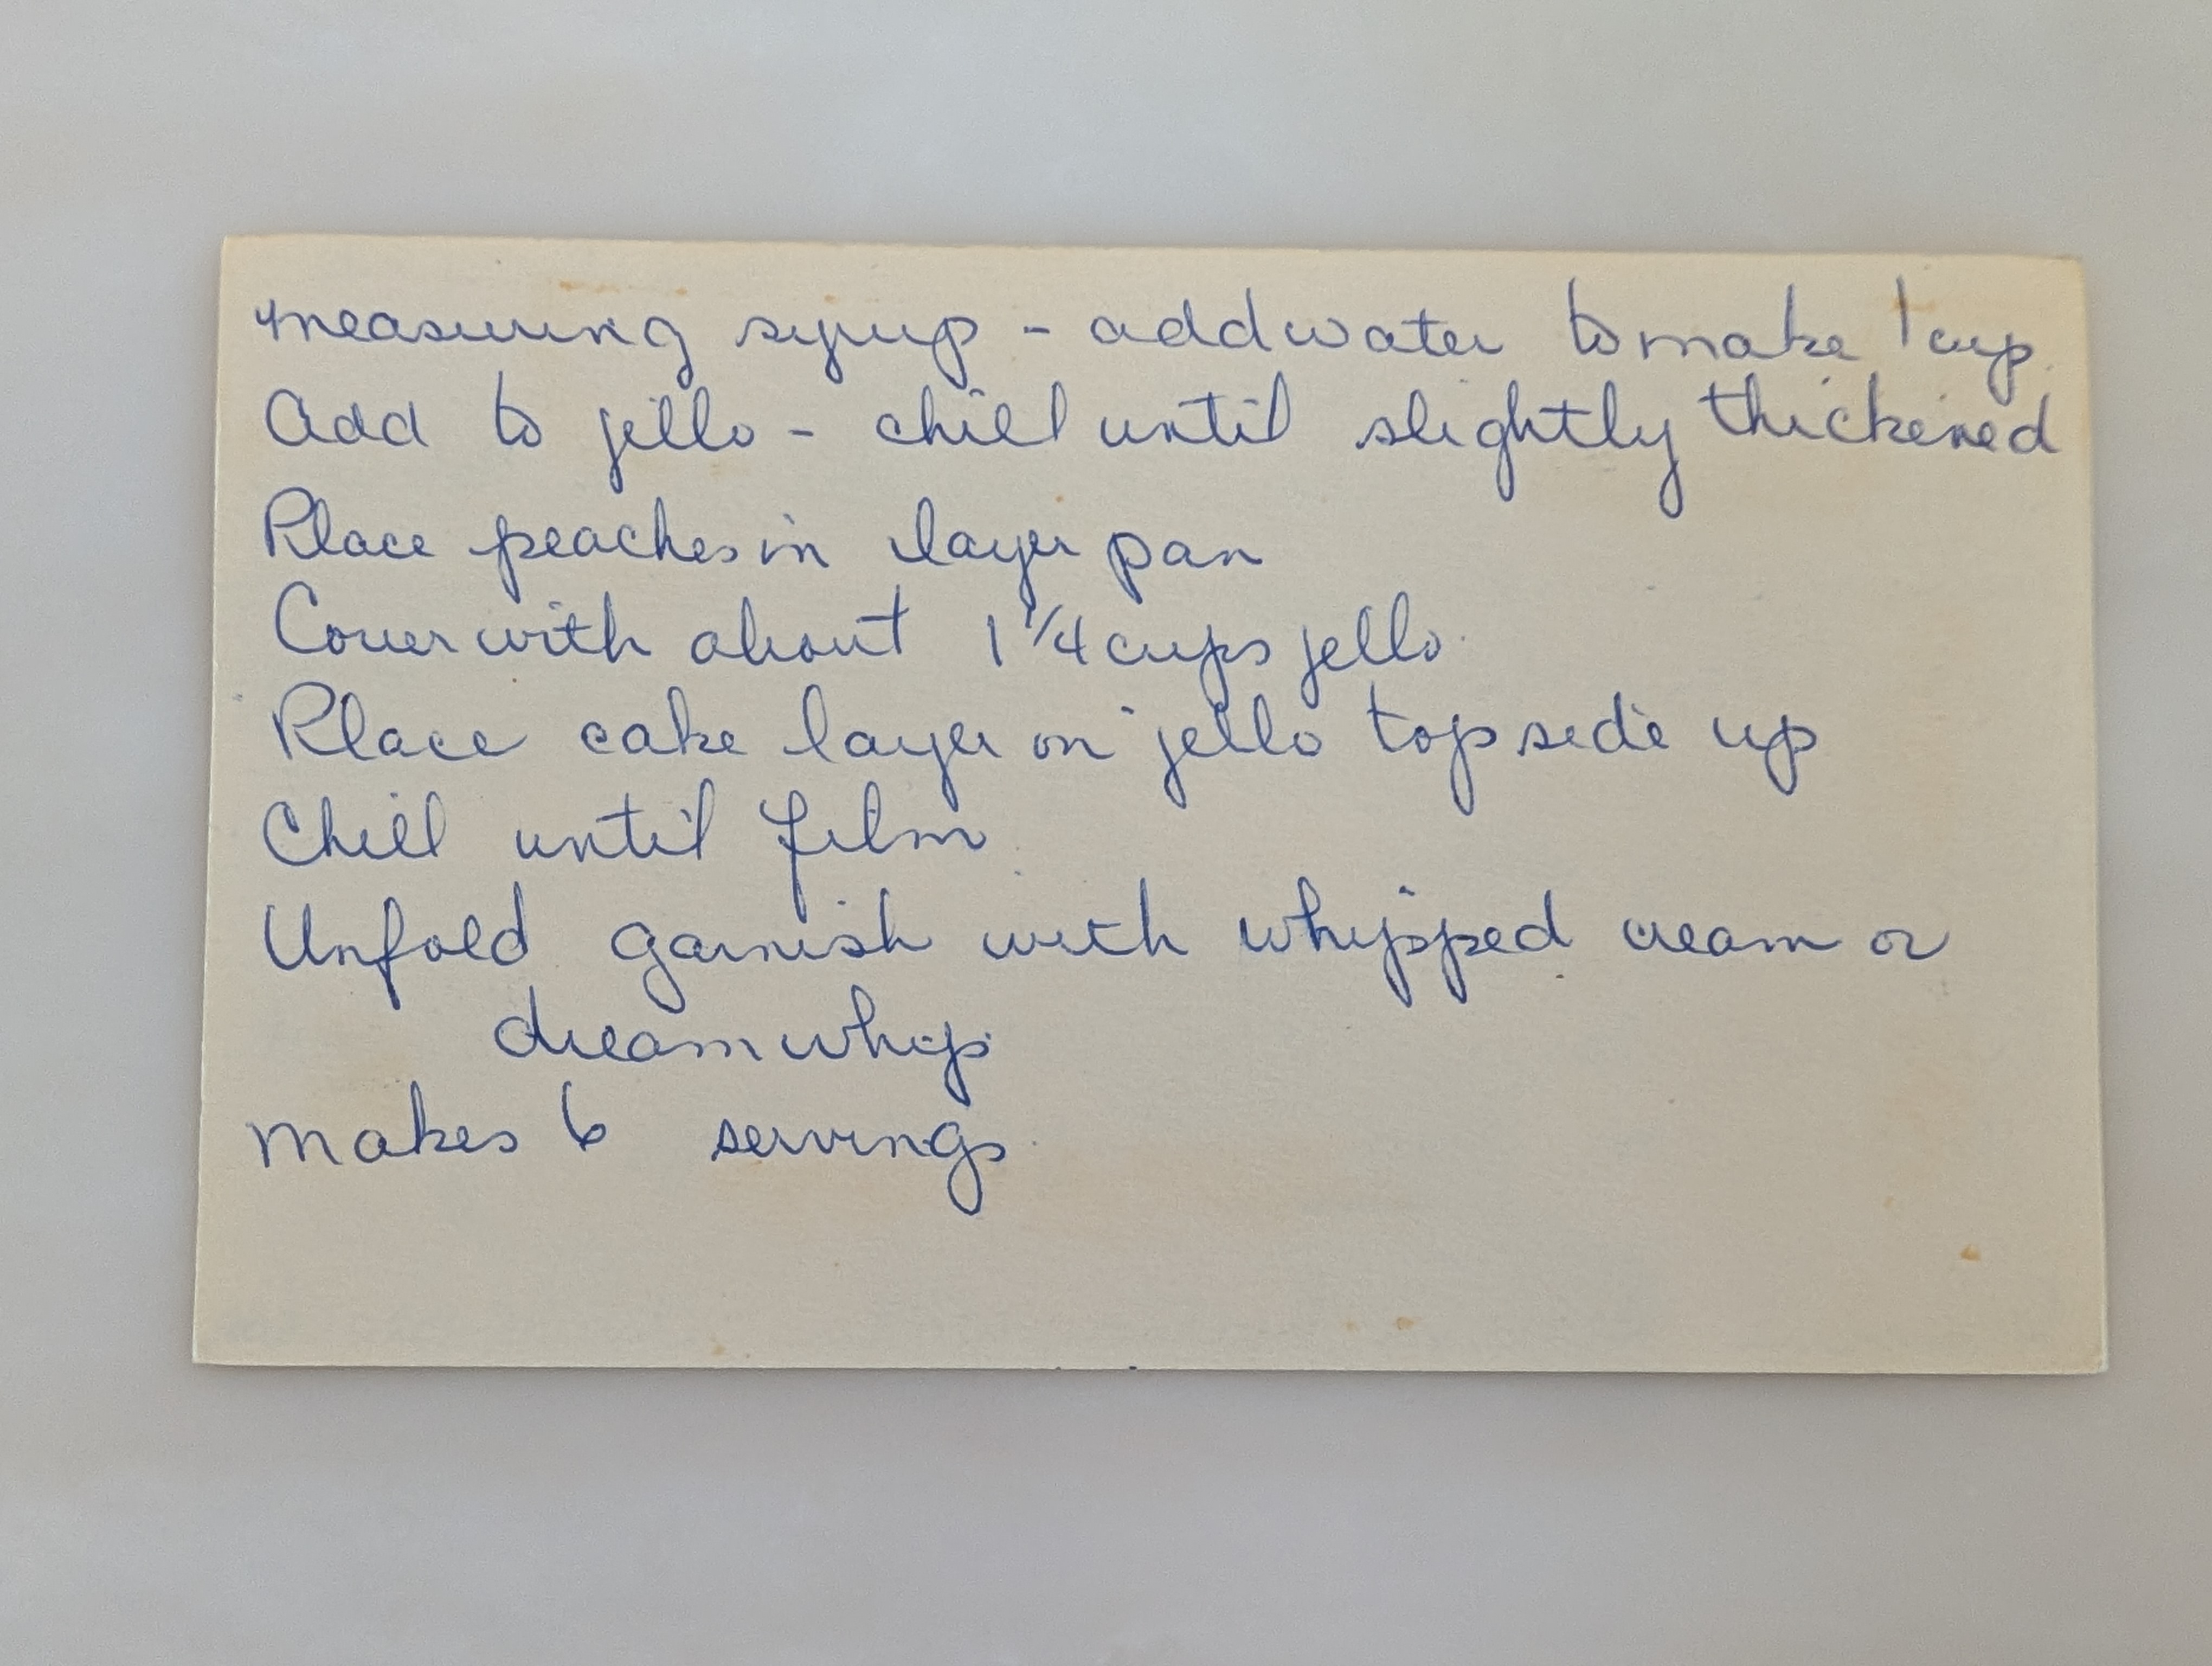 measuring syrup - add water to make 1 cup.
Add to jello - chill until slightly thickened
Place peaches in layer pan
Cover with about 1 1/4 cups jello.
Place cake layer on jello top side up
Chill until film.
Unfold garnish with whipped cream or
dream whip.
makes 6 servings.